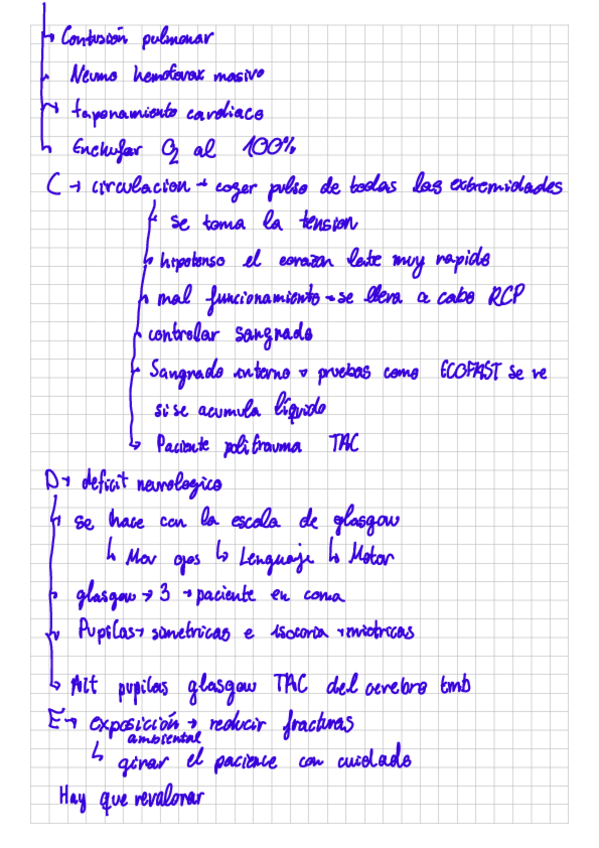 ↳ Contusión pulmonar
Neumo hemotorax masivo
↳ taponamiento cardiaco
↳ Enchufar O2 al 100%
C → circulacion → coger pulso de todas las extremidades
↳ se toma la tension
↳ hipotenso el corazon late muy rapido
↳ mal funcionamiento → se lleva a cabo RCP
↳ controlar sangrado
↳ Sangrado interno → pruebas como ECOFAST se ve
si se acumula líquido
↳ Paciente politrauma TAC
D → deficit neurologico
↳ se hace con la escala de glasgow
↳ Mov ojos ↳ Lenguaje ↳ Motor
↳ glasgow → 3 → paciente en coma
↳ Pupilas → simetricas e isocoria → mioticas
↳ Alt pupilas glasgow TAC del cerebro tmb
E → exposición → reducir fracturas
ambiental
↳ girar el paciente con cuidado
Hay que revalorar